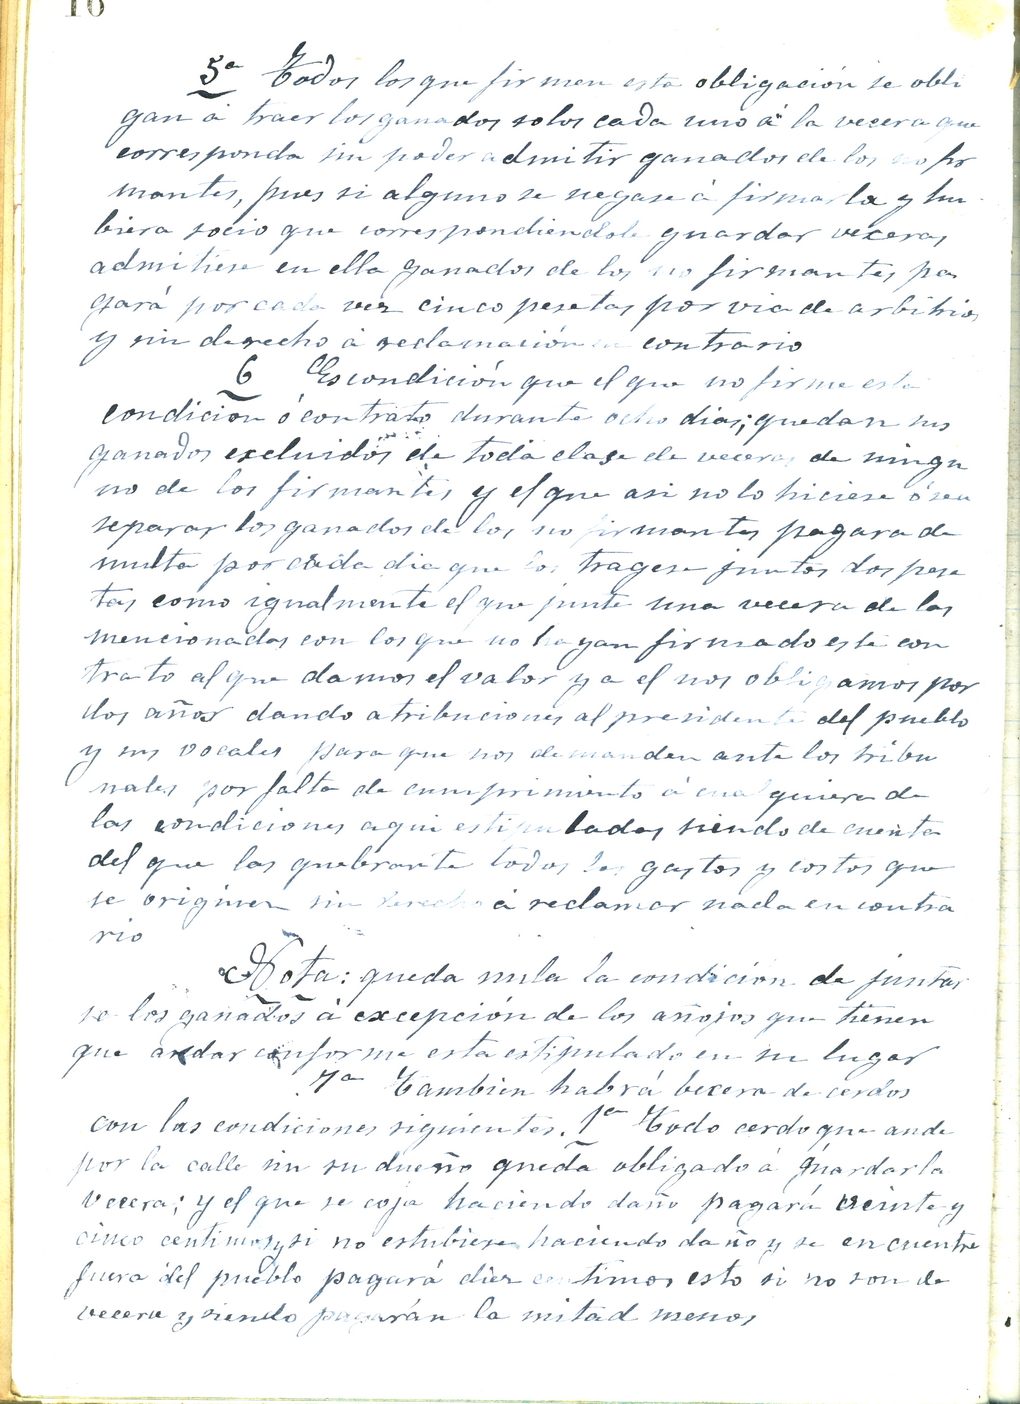 10
5ª Todos los que firmen esta obligación se obli
gan á traer los ganados solos cada uno á la vecera que
corresponda sin poder admitir ganados de los no fir
mantes, pues si alguno se negase á firmarla y hu
biera socio que correspondiendole guardar veceras
admitiese en ella ganados de los no firmantes pa
gará por cada vez cinco pesetas por via de arbitrios
y sin derecho á reclamación en contrario
6 Es condición que el que no firme esta
condicion ó contrato durante ocho dias; quedan sus
ganados excluidos de toda clase de veceras de ningu
no de los firmantes y el que asi no lo hiciese ó sea
separar los ganados de los no firmantes pagara de
multa por cada dia que los tragese juntos dos pese
tas como igualmente el que junte una vecera de las
mencionadas con los que no hayan firmado este con
trato al que damos el valor y a el nos obligamos por
dos años dando atribuciones al presidente del pueblo
y sus vocales para que nos demanden ante los tribu
nales por falta de cumprimiento á cualquiera de
las condiciones aqui estipuladas siendo de cuenta
del que las quebrante todos los gastos y costos que
se originen sin derecho á reclamar nada en contra
rio
Nota: queda nula la condición de juntar
se los ganados á excepción de los añojos que tienen
que andar conforme esta estipulado en su lugar
7ª Tambien habrá becera de cerdos
con las condiciones siguientes. 1ª Todo cerdo que ande
por la calle sin su dueño queda obligado á guardar la
vecera; y el que se coja haciendo daño pagará veinte y
cinco centimos, y si no estubiese haciendo daño y se encuentre
fuera del pueblo pagará diez centimos esto si no son de
vecera y siendo pagarán la mitad menos